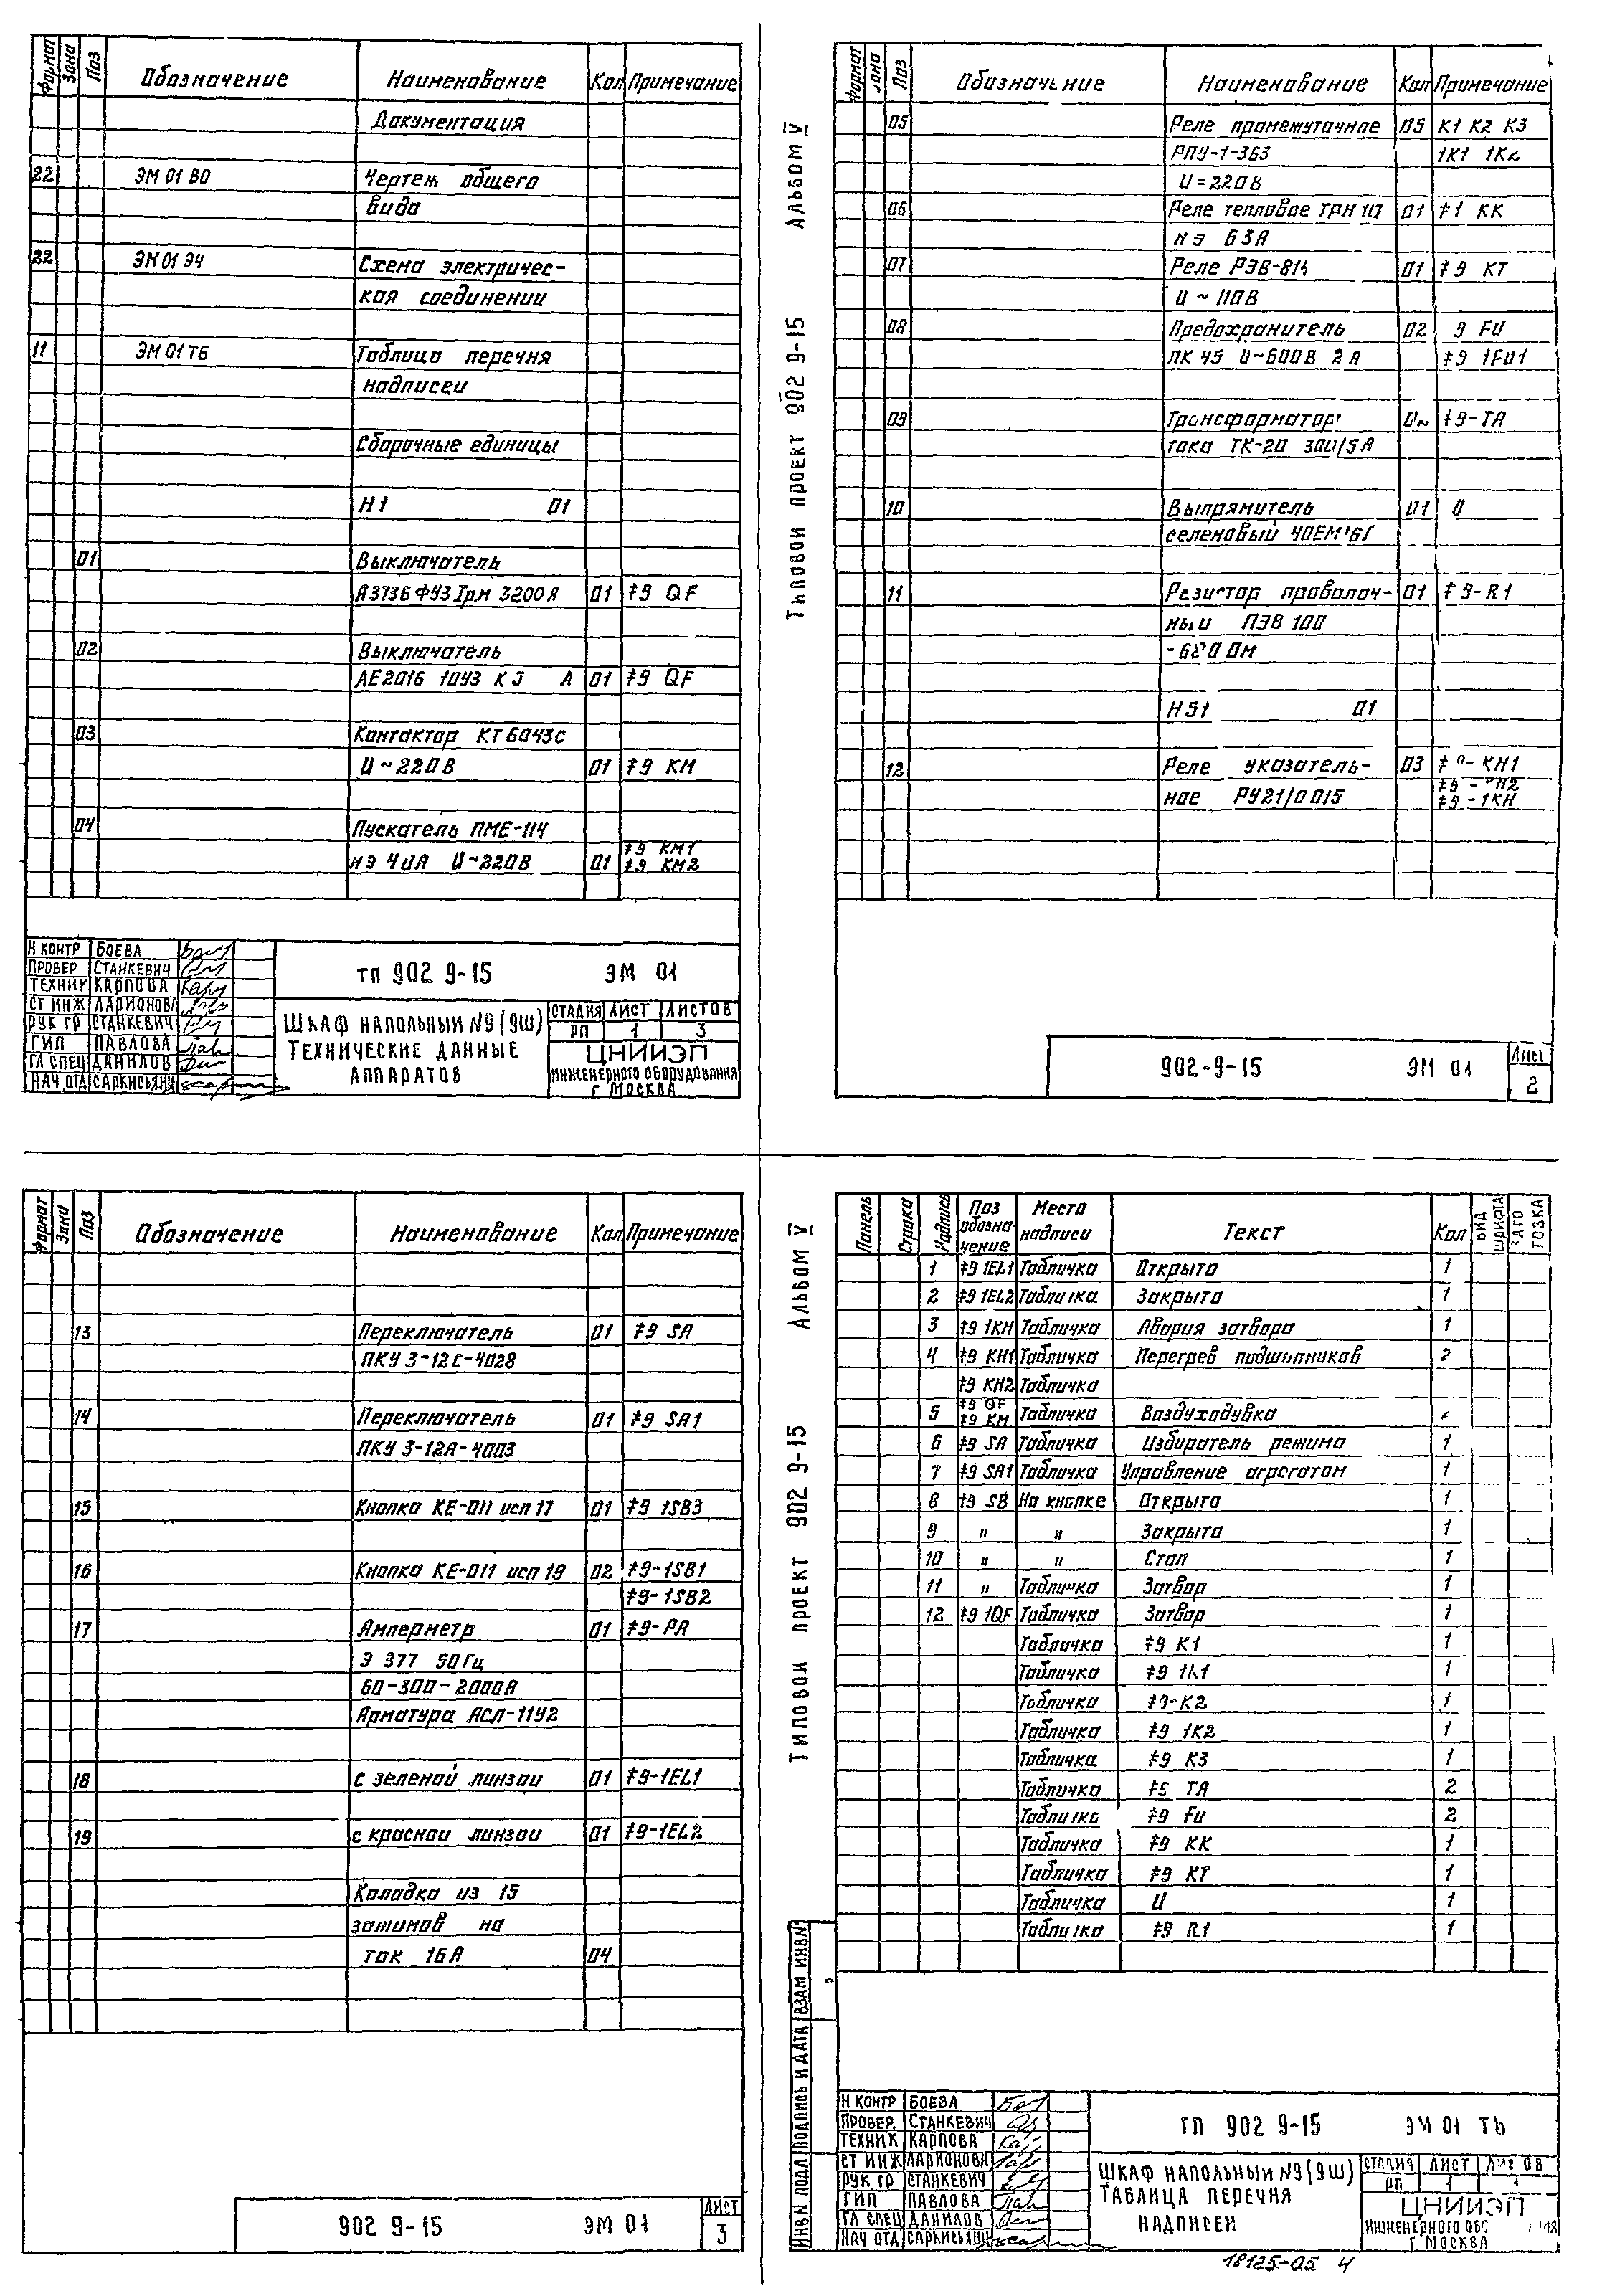 Формат Зона Поз Обозначение Наименование Кол Примечание
Документация
22 ЭМ 01 ВО Чертеж общего
вида
22 ЭМ 01 Э4 Схема электричес-
кая соединении
11 ЭМ 01 ТБ Таблица перечня
надписеи
Сборочные единицы
Н1 01
01 Выключатель
А3736 ФУЗ Iрм 3200А 01 ‡9 QF
02 Выключатель
АЕ2016 10УЗ А 01 ‡9 QF
03 Контактор КТ6043с
U~220В 01 ‡9 КМ
04 Пускатель ПМЕ-114
‡9 КМ1
нэ U~220В 01 ‡9 КМ2
Н КОНТР БОЕВА
ПРОВЕР СТАНКЕВИЧ
ТЕХНИК КАРПОВА
СТ ИНЖ ЛАРИОНОВА
РУК ГР СТАНКЕВИЧ
ГИП ПАВЛОВА
ГЛ СПЕЦ ДАНИЛОВ
НАЧ ОТД САРКИСЬЯНЦ
ТП 902 9-15 ЭМ 01
ШКАФ НАПОЛЬНЫЙ №9 (9Ш)
ТЕХНИЧЕСКИЕ ДАННЫЕ
АППАРАТОВ
СТАДИЯ ЛИСТ ЛИСТОВ
РП 1 3
ЦНИИЭП
ИНЖЕНЕРНОГО ОБОРУДОВАНИЯ
Г МОСКВА
Типовой проект 902 9-15 Альбом V
Формат Зона Поз Обозначение Наименование Кол Примечание
05 Реле промежуточное 05 К1 К2 К3
РПУ-1-363 1К1
U=220В
06 Реле тепловое ТРН 10 01 ‡1 КК
нэ 63А
07 Реле РЭВ-814 01 ‡9 КТ
U~110В
08 Предохранитель 02 9 FU
ПК 45 U~600В 2А ‡9 1FU1
09 Трансформатор ‡9-ТА
тока ТК-20 300/5А
10 Выпрямитель 01 U
селеновый
11 Резистор проволоч- 01 ‡9-R1
ный ПЭВ 100
Ом
Н51 01
12 Реле указатель- 03 КН1
ное РУ21/0 015 ‡9 - КН2
‡9 - 1КН
902-9-15 ЭМ 01 Лист
2
Формат Зона Поз Обозначение Наименование Кол Примечание
13 Переключатель 01 ‡9 SA
ПКУ 3-12С-4028
14 Переключатель 01 ‡9 SA1
ПКУ 3-12А-4003
15 Кнопка КЕ-011 исп 17 01 ‡9 1SB3
16 Кнопка КЕ-011 исп 19 02 ‡9-1SB1
‡9-1SB2
17 Амперметр 01 ‡9-РА
Э 377 50Гц
60-300-2000А
Арматура АСЛ-11У2
18 с зеленой линзои 01 ‡9-1EL1
19 с краснои линзои 01 ‡9-1EL2
Колодка из 15
зажимов на
ток 16А 04
902 9-15 ЭМ 01 ЛИСТ
3
Типовои проект 902 9-15 Альбом V
Панель Строка Надпись Поз обозна-чение Место надписи Текст Кол ВИД ШРИФТА
1 ‡9 1EL1 Табличка Открыто 1
2 ‡9 1EL2 Табличка Закрыто 1
3 ‡9 1КН Табличка Авария затвора 1
4 ‡9 КН1 Табличка Перегрев подшипников 2
‡9 КН2 Табличка
‡9 QF
5 ‡9 КМ Табличка Воздуходувка
6 ‡9 SA Табличка Избиратель режима 1
7 ‡9 SA1 Табличка Управление агрегатом 1
8 ‡9 SB На кнопке Открыто 1
9 " " Закрыто 1
10 " " Стоп 1
11 " Табличка Затвор 1
12 ‡9 1QF Табличка Затвор 1
Табличка ‡9 К1 1
Табличка ‡9 1К1 1
Табличка ‡9-К2 1
Табличка ‡9 1К2 1
Табличка ‡9 К3 1
Табличка ТА 2
Табличка ‡9 FU 2
Табличка ‡9 КК 1
Табличка ‡9 КТ 1
Табличка U 1
Табличка ‡9 R1 1
ИНВ№ ПОДЛ ПОДПИСЬ И ДАТА ВЗАМ ИНВ№
Н КОНТР БОЕВА
ПРОВЕР. СТАНКЕВИЧ
ТЕХНИК КАРПОВА
СТ ИНЖ ЛАРИОНОВА
РУК ГР СТАНКЕВИЧ
ГИП ПАВЛОВА
ГЛ СПЕЦ ДАНИЛОВ
НАЧ ОТД САРКИСЬЯНЦ
ТП 902 9-15 ЭМ 01 ТБ
ШКАФ НАПОЛЬНЫЙ №9 (9Ш)
ТАБЛИЦА ПЕРЕЧНЯ
НАДПИСЕЙ
СТАДИЯ ЛИСТ ЛИСТОВ
РП 1 1
ЦНИИЭП
ИНЖЕНЕРНОГО
Г МОСКВА
18125-05 4